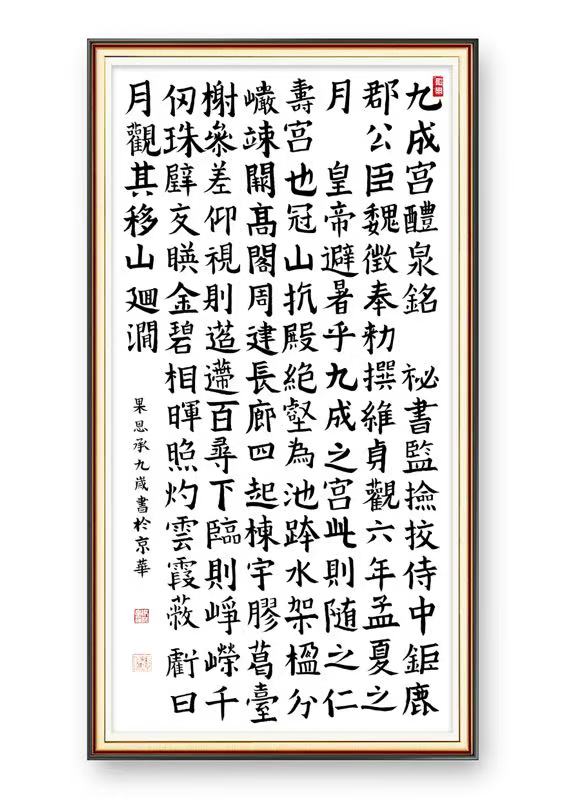 九成宫醴泉銘 祕書監撿挍侍中鉅鹿
郡公臣魏徵奉勑撰維貞觀六年孟夏之
月 皇帝避暑乎九成之宫此則随之仁
壽宫也冠山抗殿絶壑為池跨水架楹分
巗竦闕髙閣周建長廊四起棟宇膠葛臺
榭叅差仰視則迢遰百尋下臨則崢嶸千
仞珠璧交暎金碧相暉照灼雲霞蔽虧日
月觀其移山廻澗
果恩承九歲書於京華